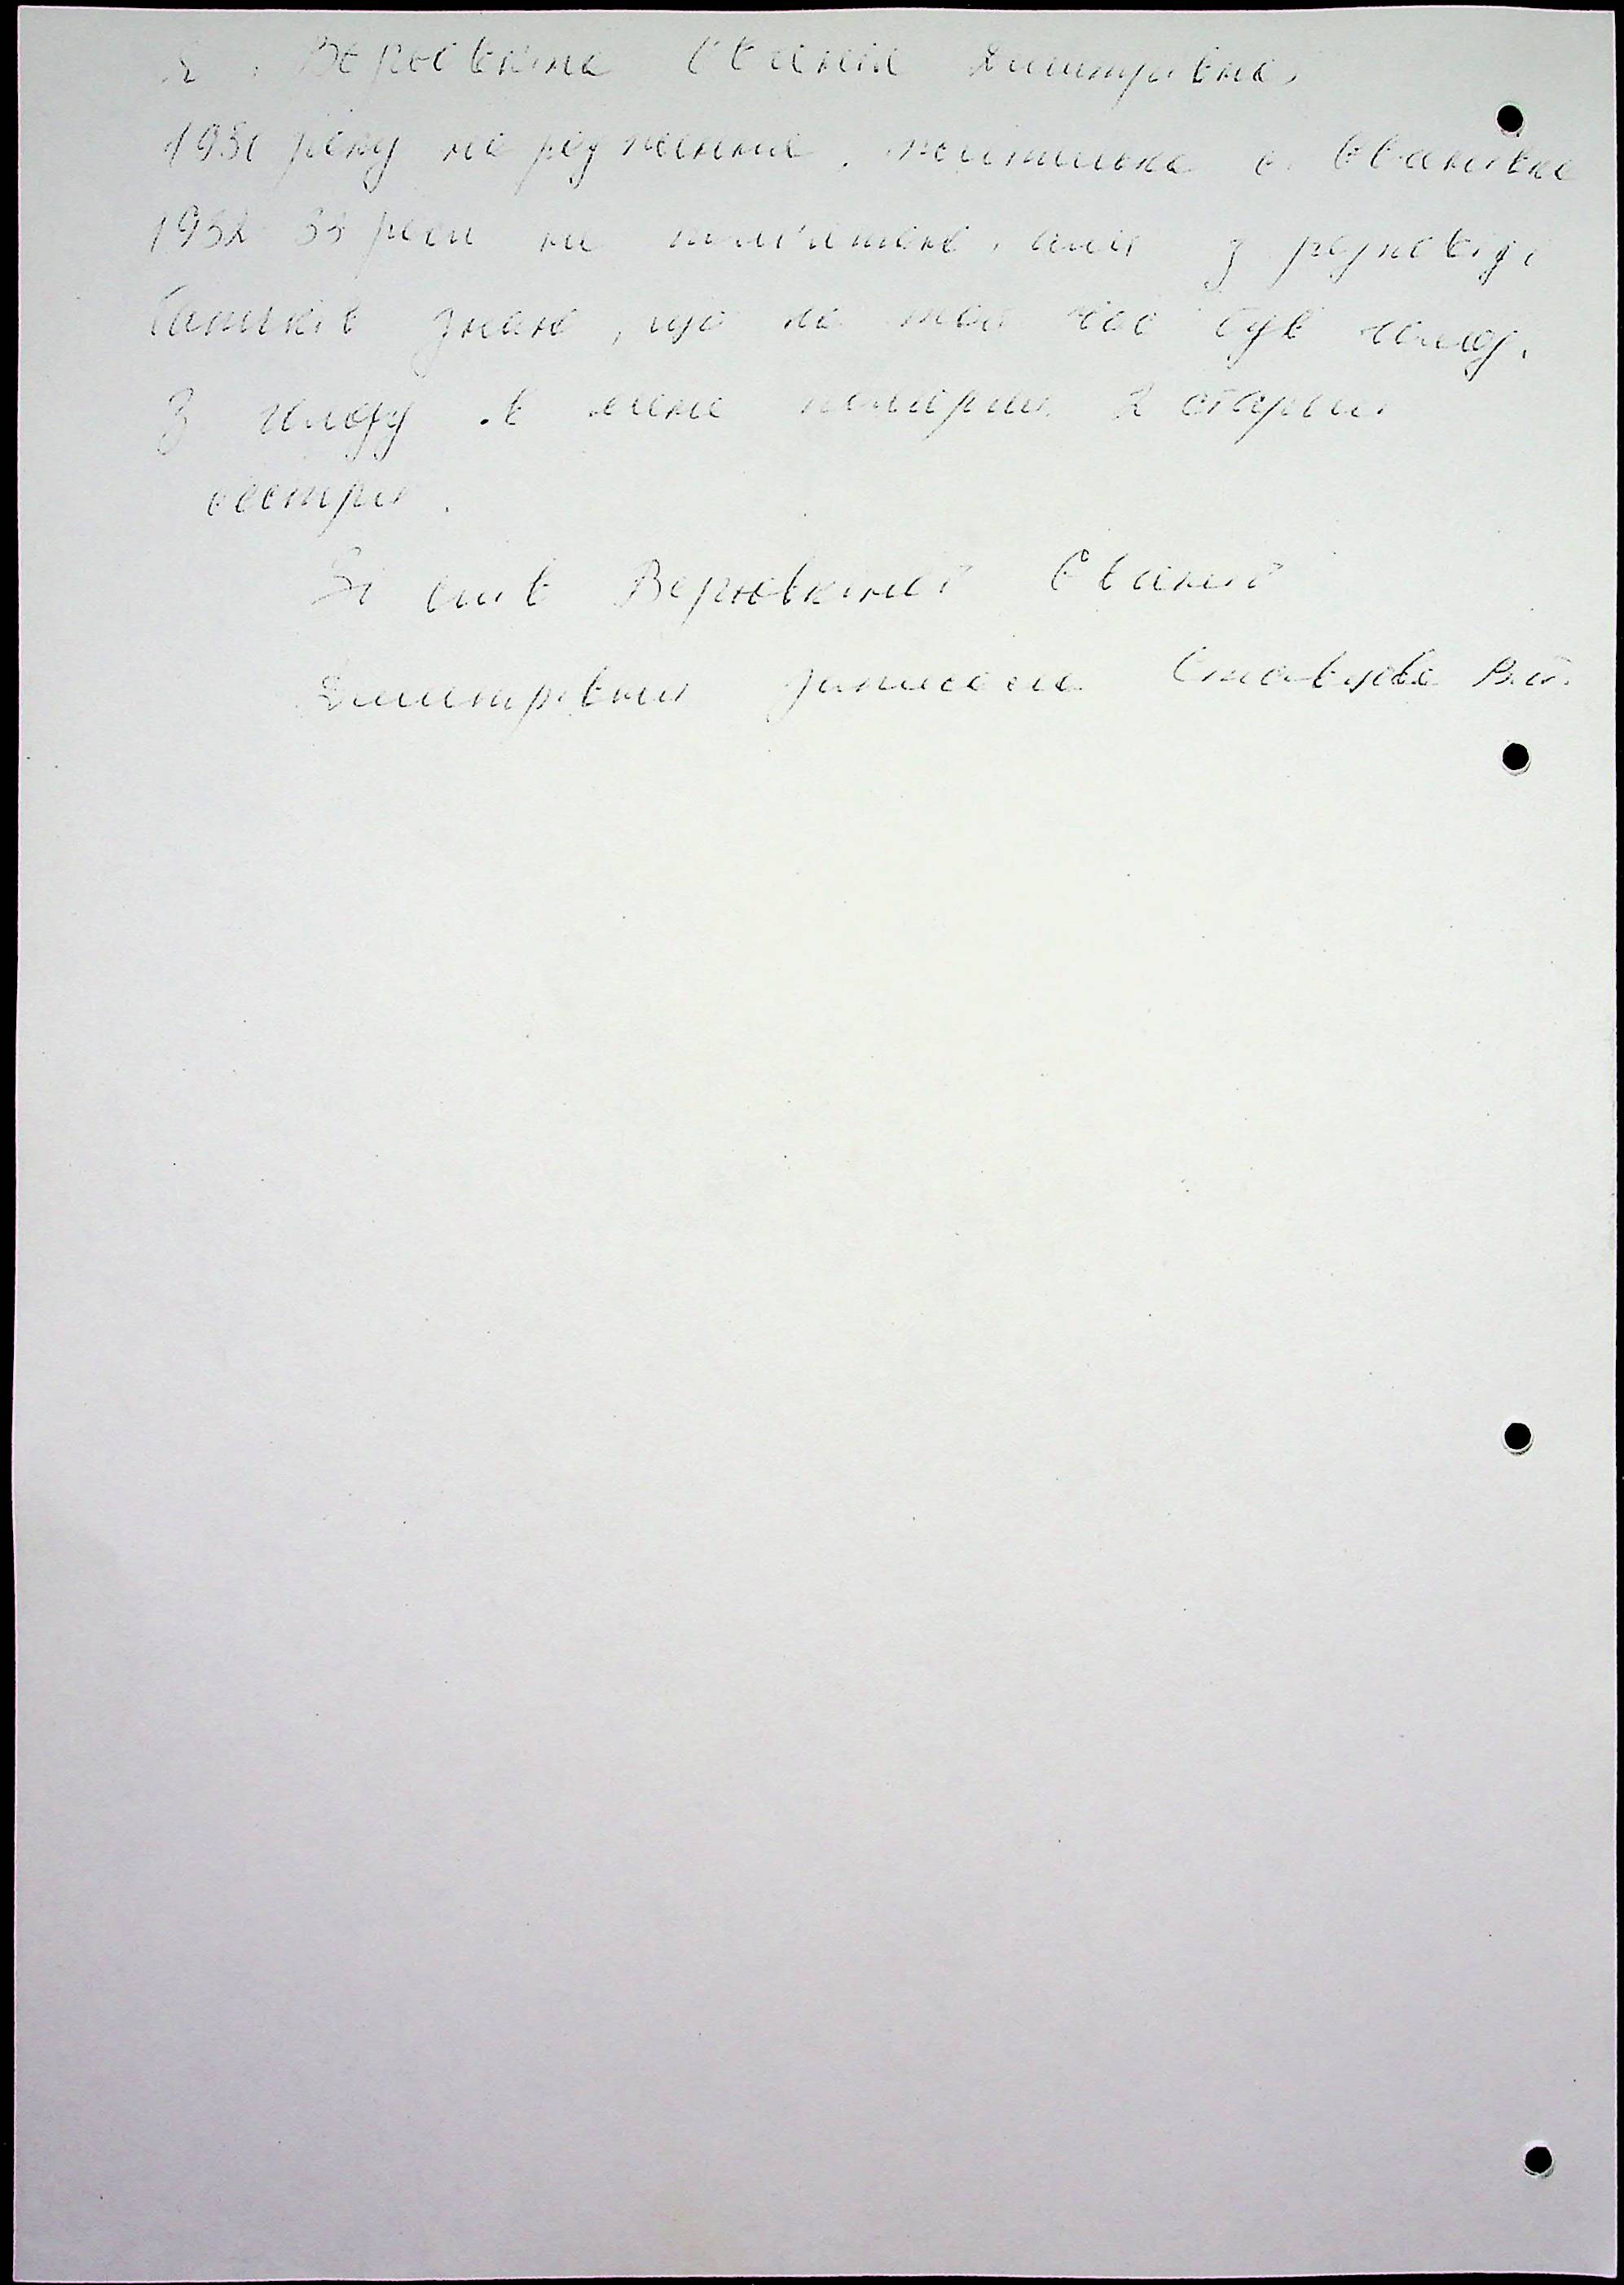 Я, Верьовкіна Євгенія Дмитрівна,
1931 року народження, жителька с. Іванівка
1932 33 роки не пам'ятаю, але з розповіді
батьків знаю, що на той час був голод.
З голоду в мене померли 2 старші
сестри.
Зі слів Верьовкіної
Дмитрівни записала